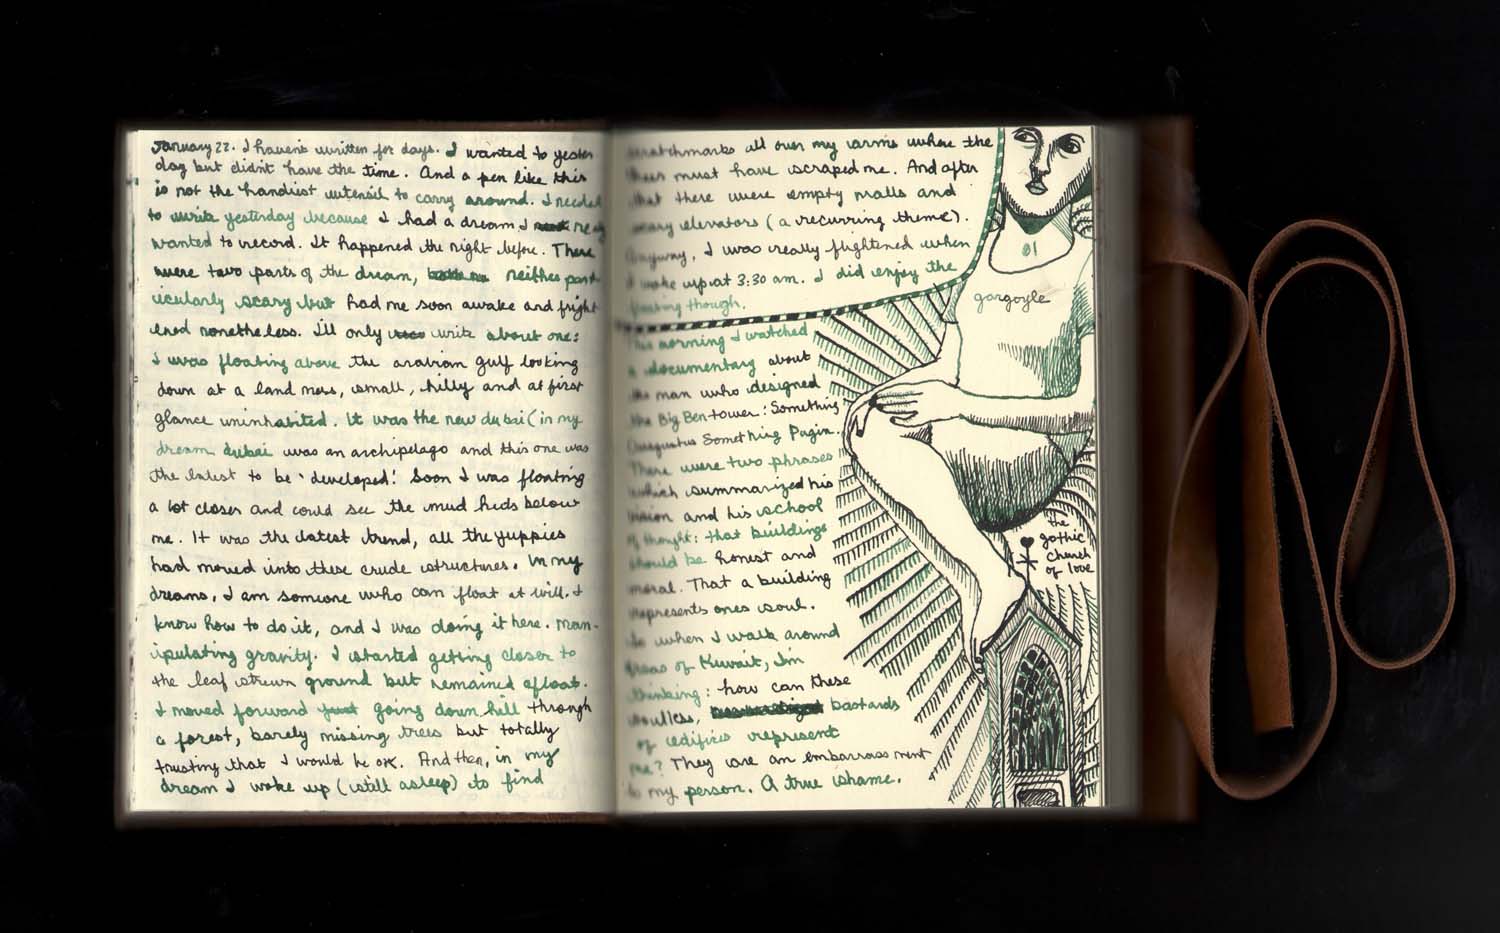 January 22. I havent written for days. I wanted to yester
day but didn't have the time. And a pen like this
is not the handiest utensil to carry around. I needed
to write yesterday because I had a dream I really
wanted to record. It happened the night before. There
were two parts of the dream, neither part
icularly scary but had me soon awake and fright
ened nonetheless. Ill only write about one:
I was floating above the arabian gulf looking
down at a land mass, small, hilly and at first
glance uninhabited. It was the new dubai (in my
dream dubai was an archipelago and this one was
the latest to be 'developed! Soon I was floating
a lot closer and could see the mud huts below
me. It was the latest trend, all the yuppies
had moved into these crude structures. In my
dreams, I am someone who can float at will. I
know how to do it, and I was doing it here. Man-
ipulating gravity. I started getting closer to
the leaf strewn ground but remained afloat.
I moved forward just going down hill through
a forest, barely missing trees but totally
trusting that I would be OK. And then, in my
dream I woke up (still asleep) to find
scratchmarks all over my arms where the
trees must have scraped me. And after
that there were empty malls and
scary elevators (a recurring theme).
Anyway, I was really frightened when
I woke up at 3:30 am. I did enjoy the
floating though.
This morning I watched
a documentary about
the man who designed
the Big Ben tower: Something
Augustus Something Pugin.
There were two phrases
which summarized his
vision and his school
of thought: that buildings
should be honest and
moral. That a building
represents ones soul.
So when I walk around
areas of Kuwait, I'm
thinking: how can these
soulless, bastards
of edifices represent
me? They are an embarrassment
to my person. A true shame.
gargoyle
the
gothic
church
of love